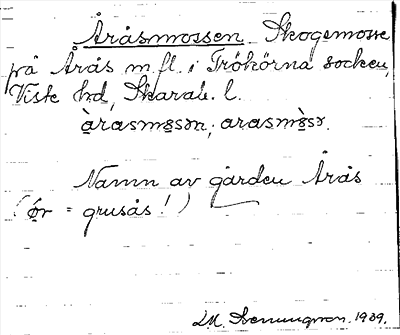 Åråsmossen Skogsmosse
på Årås m.fl. i Trökörna socken,
Viste hd, Skarab. l.
àrasmɷsən, arasmɷ̀sə.
Namn av gården Årås
(ør = grusås!)
1909.